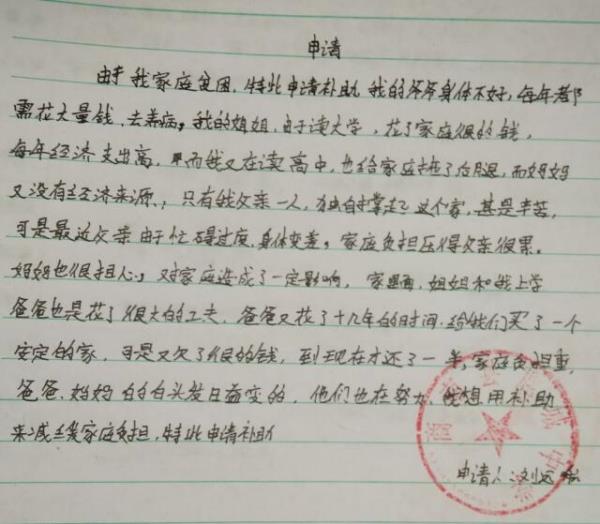 申请
由于我家庭贫困,特此申请补助,我的爷爷身体不好,每年都
需花大量钱,去养病,我的姐姐,由于读大学,花了家庭很的钱,
每年经济支出高,而我又在读高中,也给家庭拖了后退,而妈妈
又没有经济来源,只有我父亲一人,独自撑起这个家,甚是辛苦,
可是最近父亲由于忙碌过度,身体变差,家庭负担压得父亲很累.
妈妈也很担心,对家庭造成了一定影响,家里面,姐姐和我上学
爸爸也是花了很大的工夫,爸爸又花了十几年的时间,给我们买了一个
安定的家,可是又欠了很的钱,到现在才还了一半,家庭负担重,
爸爸,妈妈的白头发日益变的,他们也在努力,我想用补助
来减缓家庭负担,特此申请补助
申请人:刘远